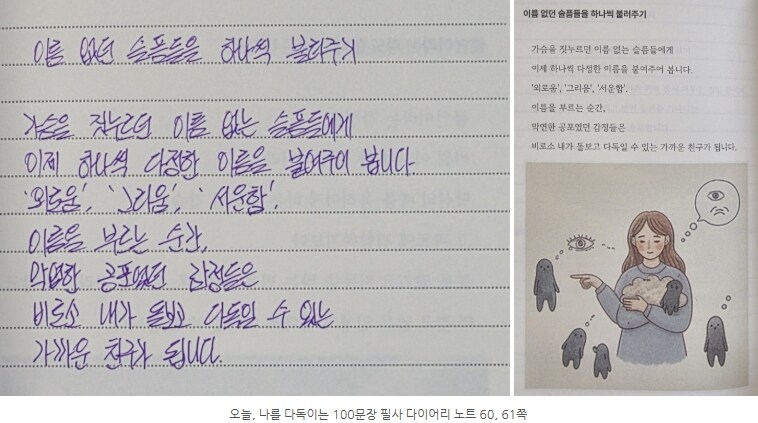 이름 없던 슬픔들을 하나씩 불러주기
가슴을 짓누르던 이름 없는 슬픔들에게
이제 하나씩 다정한 이름을 붙여주어 봅니다.
'외로움', '그리움', '서운함'.
이름을 부르는 순간,
막연한 공포였던 감정들은
비로소 내가 돌보고 다독일 수 있는
가까운 친구가 됩니다.
이름 없던 슬픔들을 하나씩 불러주기
가슴을 짓누르던 이름 없는 슬픔들에게
이제 하나씩 다정한 이름을 붙여주어 봅니다.
'외로움', '그리움', '서운함'.
이름을 부르는 순간,
막연한 공포였던 감정들은
비로소 내가 돌보고 다독일 수 있는 가까운 친구가 됩니다.
오늘, 나를 다독이는 100문장 필사 다이어리 노트 60, 61쪽